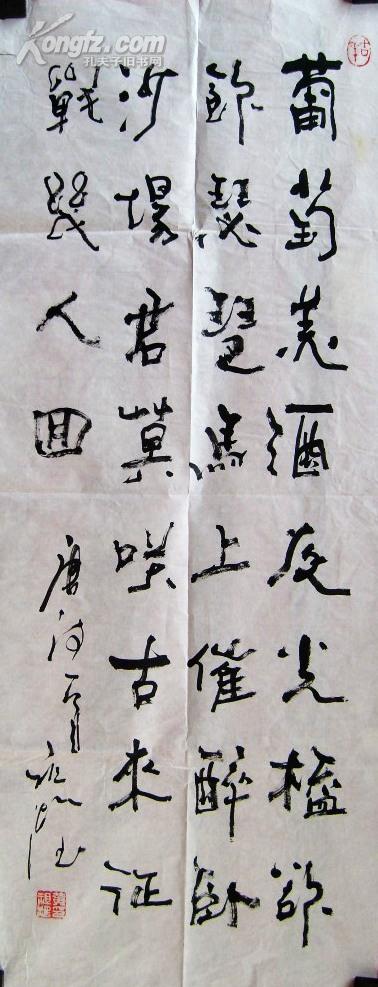 Kongfz.com
孔夫子旧书网
葡萄美酒夜光杯欲
飲琵琶馬上催醉卧
沙場君莫咲古來征
戰幾人回
唐诗一首